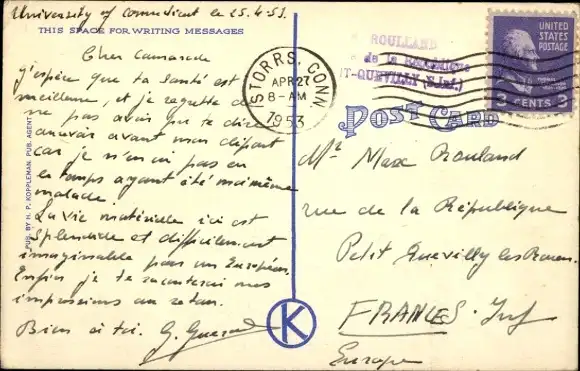 University of connecticut le 25.4.53.
THIS SPACE FOR WRITING MESSAGES
Cher camarade
j'espère que ta santé est
meilleure, et je regrette de
ne pas avoir pu te dire
au revoir avant mon départ
car je n'en ai pas eu
le temps ayant été moi même
malade.
La vie matérielle ici est
splendide et difficilement
imaginable pour un Européen.
Enfin je te raconterai mes
impressions au retour.
Bien à toi. G.
PUB. BY H. P. KOPPLEMAN, PUB. AGENT
STORRS, CONN.
APR 27
8-AM
1953
ROULLAND
de la République
T-QUEVILLY (S.Inf.)
UNITED
STATES
POSTAGE
3 CENTS 3
POST CARD
Mr Max Rouland
rue de la République
Petit Quevilly les Rouen.
FRANCE S. Inf
Europe
K